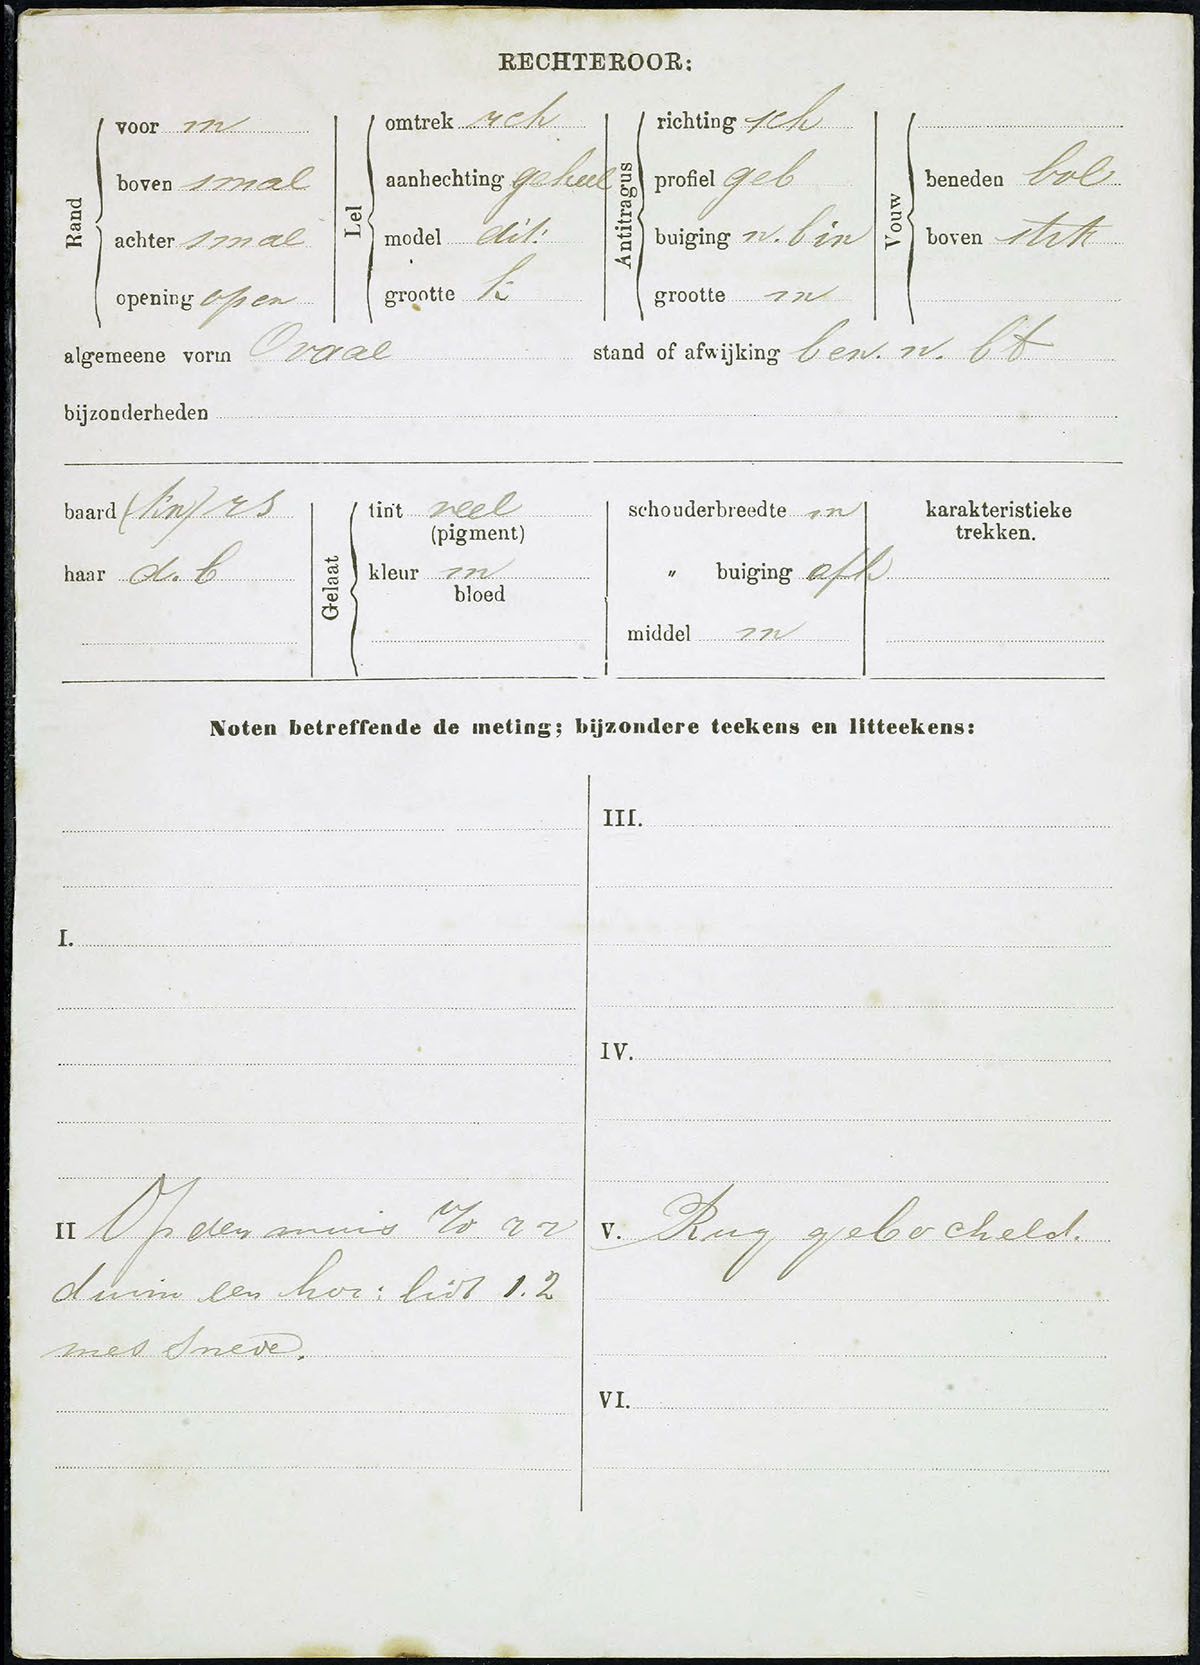 RECHTEROOR:
Rand
voor m
boven smal
achter smal
opening open
Lel
omtrek rch
aanhechting geheel
model dit:
grootte k
Antitragus
richting sch
profiel geb
buiging n. bin
grootte m
Vouw
beneden bol
boven strk
algemeene vorm Ovaal
stand of afwijking ben. n. bt
bijzonderheden
baard (kn) rs
haar d. b
Gelaat
tint veel
(pigment)
kleur m
bloed
schouderbreedte m
" buiging afh
middel m
karakteristieke
trekken.
Noten betreffende de meting; bijzondere teekens en litteekens:
I.
II Op den muis
duim een hor: lidt 1.2
mes snede.
III.
IV.
V. Rug gebocheld.
VI.